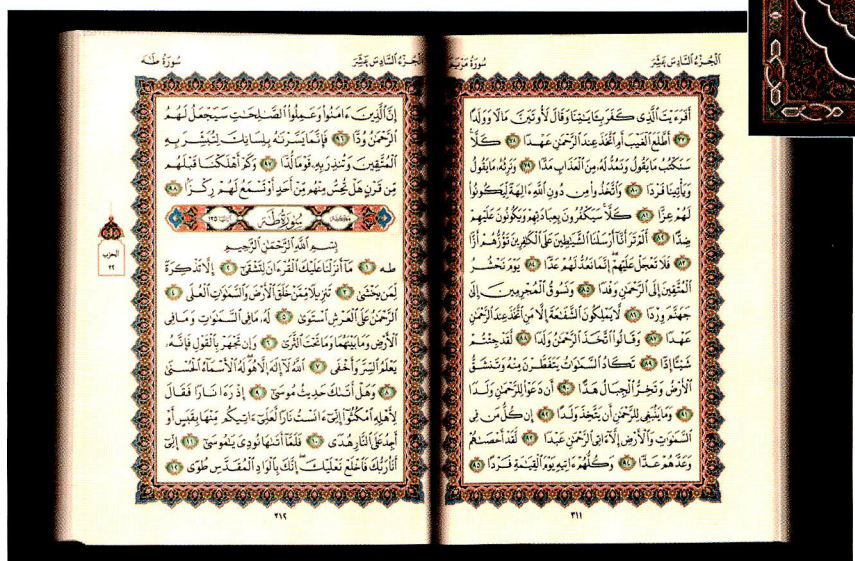 الجزء السادس عشر سورة مريم
أَفَرَءَيْتَ ٱلَّذِى كَفَرَ بِـَٔايَٰتِنَا وَقَالَ لَأُوتَيَنَّ مَالًا وَوَلَدًا
٧٧ أَطَّلَعَ ٱلْغَيْبَ أَمِ ٱتَّخَذَ عِندَ ٱلرَّحْمَٰنِ عَهْدًا ٧٨ كَلَّا
سَنَكْتُبُ مَا يَقُولُ وَنَمُدُّ لَهُۥ مِنَ ٱلْعَذَابِ مَدًّا ٧٩ وَنَرِثُهُۥ مَا يَقُولُ
وَيَأْتِينَا فَرْدًا ٨٠ وَٱتَّخَذُوا۟ مِن دُونِ ٱللَّهِ ءَالِهَةً لِّيَكُونُوا۟
لَهُمْ عِزًّا ٨١ كَلَّا سَيَكْفُرُونَ بِعِبَادَتِهِمْ وَيَكُونُونَ عَلَيْهِمْ
ضِدًّا ٨٢ أَلَمْ تَرَ أَنَّآ أَرْسَلْنَا ٱلشَّيَٰطِينَ عَلَى ٱلْكَٰفِرِينَ تَؤُزُّهُمْ أَزًّا
٨٣ فَلَا تَعْجَلْ عَلَيْهِمْ إِنَّمَا نَعُدُّ لَهُمْ عَدًّا ٨٤ يَوْمَ نَحْشُرُ
ٱلْمُتَّقِينَ إِلَى ٱلرَّحْمَٰنِ وَفْدًا ٨٥ وَنَسُوقُ ٱلْمُجْرِمِينَ إِلَىٰ
جَهَنَّمَ وِرْدًا ٨٦ لَّا يَمْلِكُونَ ٱلشَّفَٰعَةَ إِلَّا مَنِ ٱتَّخَذَ عِندَ ٱلرَّحْمَٰنِ
عَهْدًا ٨٧ وَقَالُوا۟ ٱتَّخَذَ ٱلرَّحْمَٰنُ وَلَدًا ٨٨ لَّقَدْ جِئْتُمْ
شَيْـًٔا إِدًّا ٨٩ تَكَادُ ٱلسَّمَٰوَٰتُ يَتَفَطَّرْنَ مِنْهُ وَتَنشَقُّ
ٱلْأَرْضُ وَتَخِرُّ ٱلْجِبَالُ هَدًّا ٩٠ أَن دَعَوْا۟ لِلرَّحْمَٰنِ وَلَدًا
٩١ وَمَا يَنۢبَغِى لِلرَّحْمَٰنِ أَن يَتَّخِذَ وَلَدًا ٩٢ إِن كُلُّ مَن فِى
ٱلسَّمَٰوَٰتِ وَٱلْأَرْضِ إِلَّآ ءَاتِى ٱلرَّحْمَٰنِ عَبْدًا ٩٣ لَّقَدْ أَحْصَىٰهُمْ
وَعَدَّهُمْ عَدًّا ٩٤ وَكُلُّهُمْ ءَاتِيهِ يَوْمَ ٱلْقِيَٰمَةِ فَرْدًا ٩٥
٣١١
الجزء السادس عشر سورة طه
إِنَّ ٱلَّذِينَ ءَامَنُوا۟ وَعَمِلُوا۟ ٱلصَّٰلِحَٰتِ سَيَجْعَلُ لَهُمُ
ٱلرَّحْمَٰنُ وُدًّا ٩٦ فَإِنَّمَا يَسَّرْنَٰهُ بِلِسَانِكَ لِتُبَشِّرَ بِهِ
ٱلْمُتَّقِينَ وَتُنذِرَ بِهِۦ قَوْمًا لُّدًّا ٩٧ وَكَمْ أَهْلَكْنَا قَبْلَهُم
مِّن قَرْنٍ هَلْ تُحِسُّ مِنْهُم مِّنْ أَحَدٍ أَوْ تَسْمَعُ لَهُمْ رِكْزًۢا ٩٨
مكية سورة طه آياتها ١٣٥
بِسْمِ ٱللَّهِ ٱلرَّحْمَٰنِ ٱلرَّحِيمِ
طه ١ مَآ أَنزَلْنَا عَلَيْكَ ٱلْقُرْءَانَ لِتَشْقَىٰٓ ٢ إِلَّا تَذْكِرَةً
لِّمَن يَخْشَىٰ ٣ تَنزِيلًا مِّمَّنْ خَلَقَ ٱلْأَرْضَ وَٱلسَّمَٰوَٰتِ ٱلْعُلَى ٤
ٱلرَّحْمَٰنُ عَلَى ٱلْعَرْشِ ٱسْتَوَىٰ ٥ لَهُۥ مَا فِى ٱلسَّمَٰوَٰتِ وَمَا فِى
ٱلْأَرْضِ وَمَا بَيْنَهُمَا وَمَا تَحْتَ ٱلثَّرَىٰ ٦ وَإِن تَجْهَرْ بِٱلْقَوْلِ فَإِنَّهُۥ
يَعْلَمُ ٱلسِّرَّ وَأَخْفَى ٧ ٱللَّهُ لَآ إِلَٰهَ إِلَّا هُوَ لَهُ ٱلْأَسْمَآءُ ٱلْحُسْنَىٰ
٨ وَهَلْ أَتَىٰكَ حَدِيثُ مُوسَىٰٓ ٩ إِذْ رَءَا نَارًا فَقَالَ
لِأَهْلِهِ ٱمْكُثُوٓا۟ إِنِّىٓ ءَانَسْتُ نَارًا لَّعَلِّىٓ ءَاتِيكُم مِّنْهَا بِقَبَسٍ أَوْ
أَجِدُ عَلَى ٱلنَّارِ هُدًى ١٠ فَلَمَّآ أَتَىٰهَا نُودِىَ يَٰمُوسَىٰٓ ١١ إِنِّىٓ
أَنَا۠ رَبُّكَ فَٱخْلَعْ نَعْلَيْكَ إِنَّكَ بِٱلْوَادِ ٱلْمُقَدَّسِ طُوًى ١٢
٣١٢
الحزب
٣٢